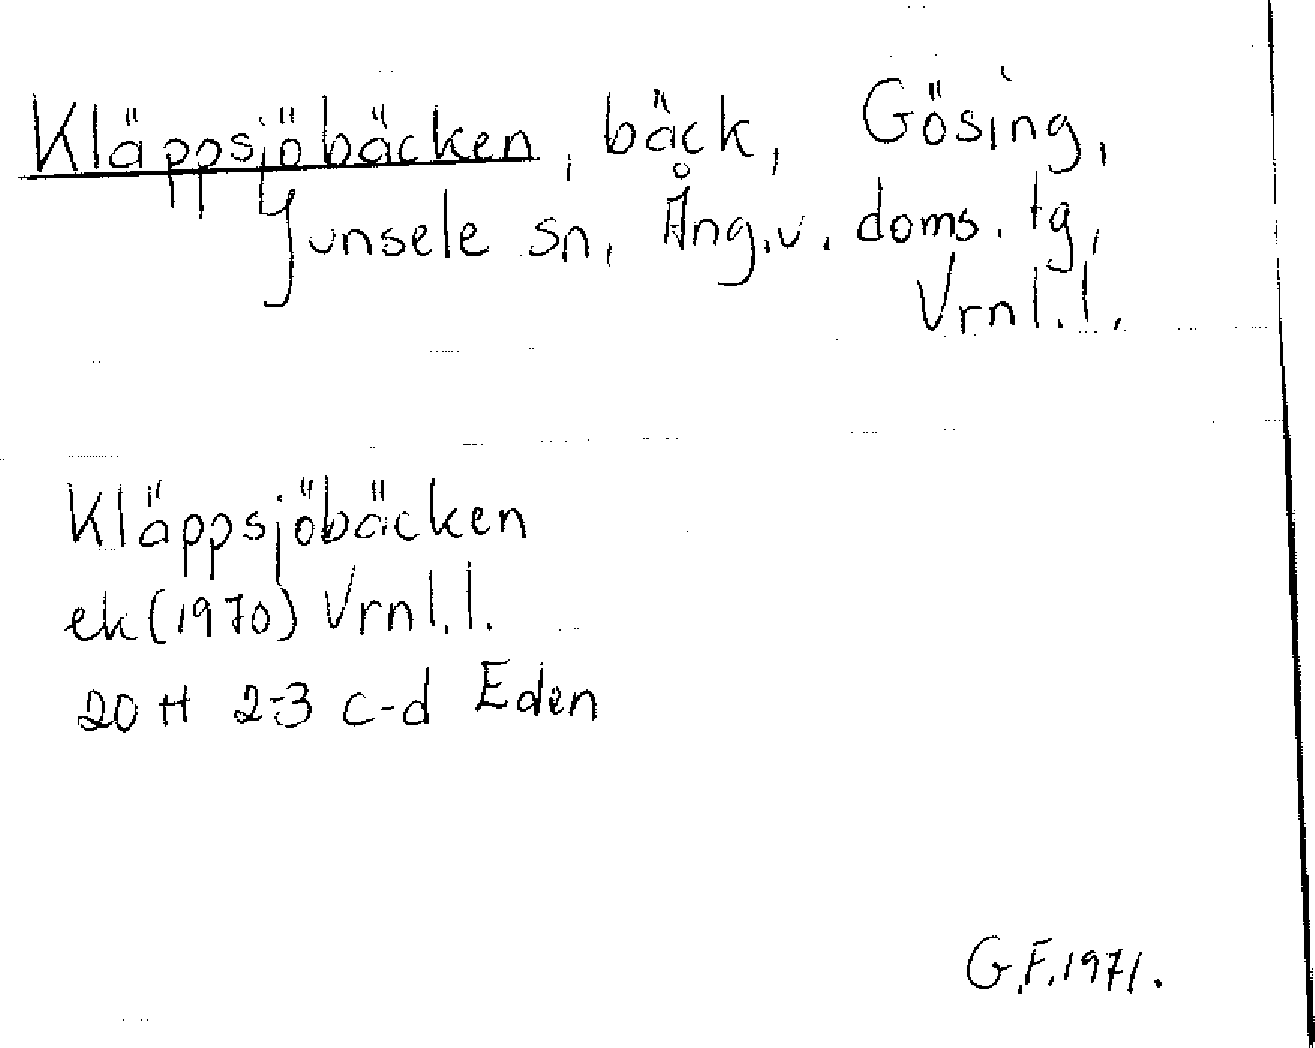 Kläppsjöbäcken, bäck, Gösing,
Junsele sn, Ång.v. doms. tg,
Vrnl.l.
Kläppsjöbäcken
ek (1970) Vrnl.l.
20 H 2-3 c-d Eden
G.F. 1971.